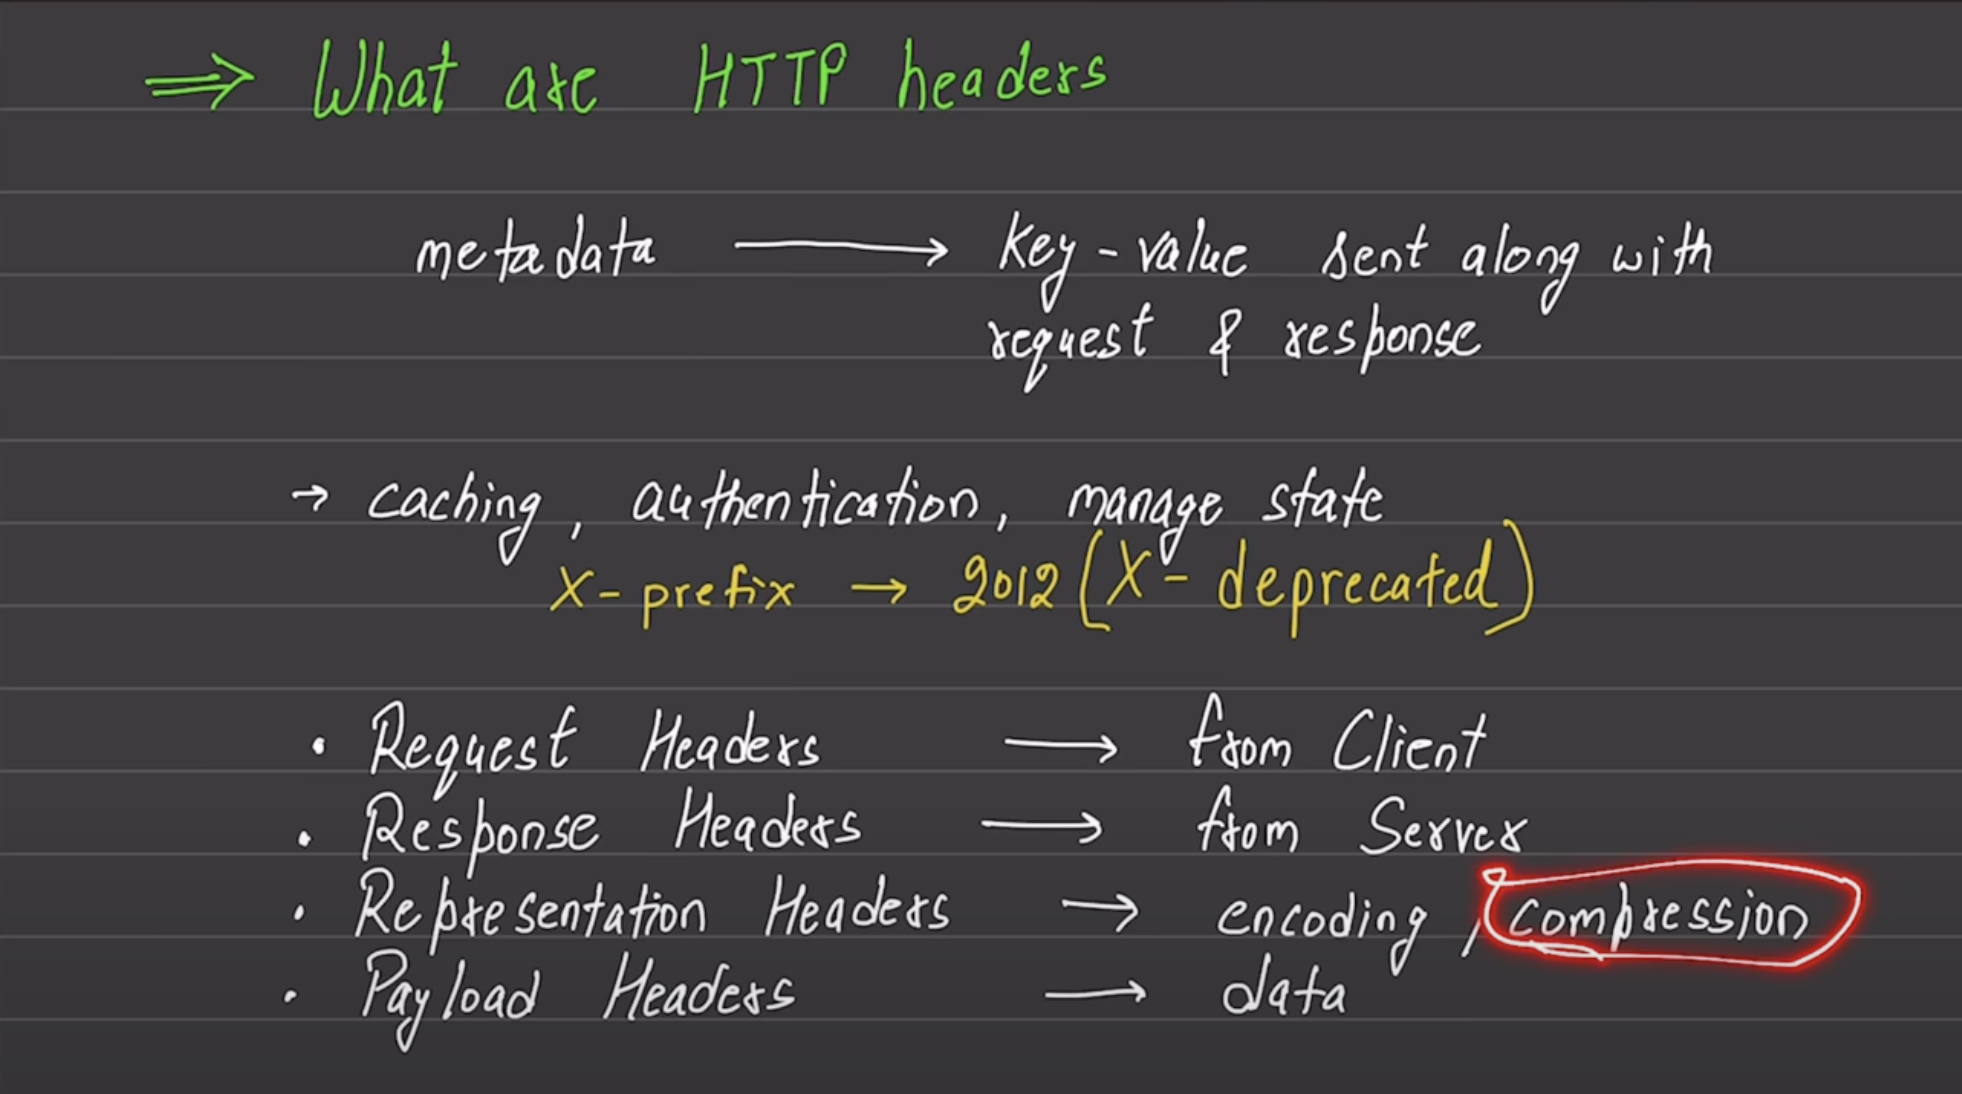 ⇒ What are HTTP headers
metadata ⟶ key-value sent along with
request & response
→ caching, authentication, manage state
X-prefix → 2012 (X- deprecated)
• Request Headers ⟶ from Client
• Response Headers ⟶ from Server
• Representation Headers → encoding, compression
• Payload Headers ⟶ data